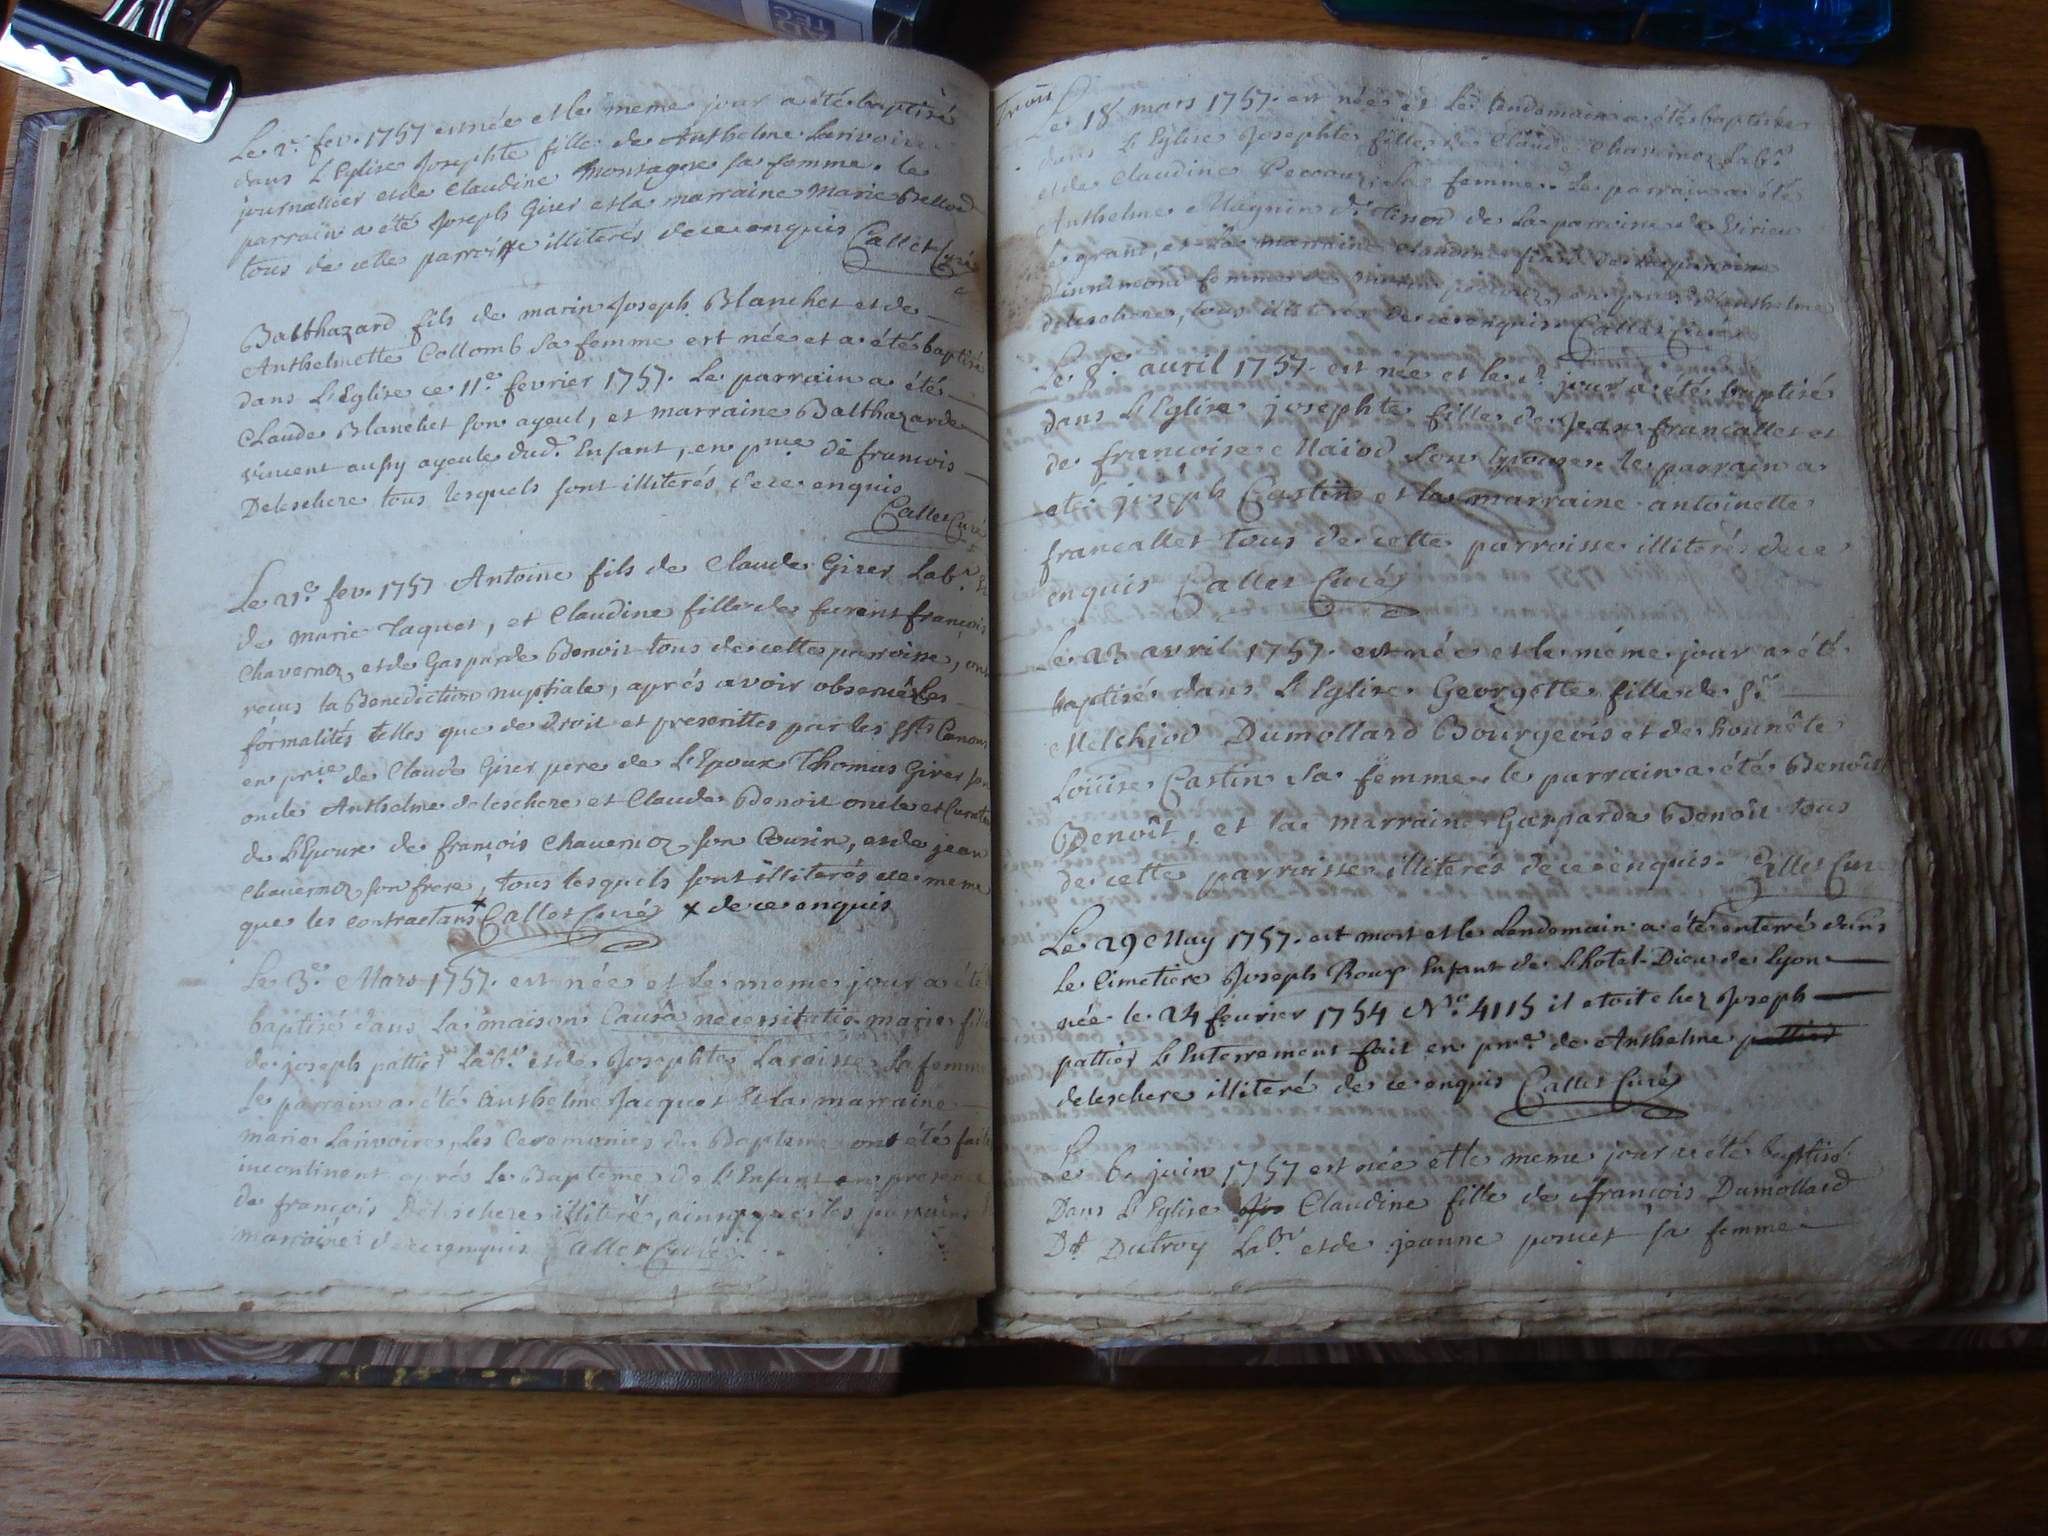 Le 2e. fev. 1757 est née et le meme jour a été baptisé
dans L'Eglise Josephte fille de Anthelme Larivoire
journalier et de Claudine Montagne sa femme. le
parrain a été Joseph Girer et la marraine Marie Bellod
tous de cette parroisse illiterés de ce enquis Callet Curé
Balthazard fils de marin Joseph Blanchet et de
Anthelmette Collomb sa femme est née et a été baptisé
dans L'Eglise ce 11e fevrier 1757. Le parrain a été
Claude Blanchet son ayeul, et marraine Balthazarde
vincent aussy ayeule dud. Enfant, en pnce de francois
Deleschere tous lesquels sont illiterés de ce enquis
Callet Curé
Le 21e. fev. 1757 Antoine fils de Claude Girer Labr. et
de marie Jaquet, et Claudine fille de furent françois
Chavernoz, et de Gasparde Benoit tous de cette parroisse, ont
reçus la Benediction nuptiale, aprés avoir observé Les
formalités telles que de Droit et prescrittes par les Sts Canons
en pnce de Claude Girer pere de L'Epoux Thomas Girer son
oncle Anthelme deleschere et Claude Benoit oncle et Curateur
de L'Epouse de françois Chavernoz son Cousin, et de jean
Chavernoz son frere, tous lesquels sont illiterés de meme
que les contractans x Callet Curé x de ce enquis
Le 3e. Mars 1757. est née et Le meme jour a été
baptisé dans La maison Causâ necessitatis marie fille
de joseph pattier Labr. et de Josephte Laroisse sa femme
Le parrain a été Anthelme Jacquet Et La marraine
marie Larivoire, Les Ceremonies du Bapteme ont été faites
incontinent aprés Le Bapteme de L'Enfant en presence
de françois Deleschere illiteré, ainsy que les parrain
marraine de ce enquis Callet Curé
Trois
Le 18 mars 1757. est née et Le Lendemain a été baptisée
dans L'Eglise Josephte fille de Claude Chavernoz Labr.
et de Claudine sa femme. Le parrain a été
Anthelme Magnin de la parroisse de Virieu
le grand, et la marraine Claudine de la parroisse
d'innimond femme de en pnce d'anthelme
deleschere, tous illiterés de ce enquis Callet Curé
Le 8e. avril 1757. est née et le jour a été baptisé
dans L'Eglise josephte fille de Jean francallet et
de françoise Maiod son Epouse le parrain a
eté joseph Castin et la marraine antoinette
francallet tous de cette parroisse illiterés de ce
enquis Callet Curé
Le 23 avril 1757. est née et le méme jour a été
baptisé dans L'Eglise Georgette fille de Sr.
Melchior Dumollard Bourgeois et de honnête
Loüise Castin sa femme le parrain a été Benoît
Benoît, et la marraine Gasparde Benoît tous
de cette parroisse illiterés de ce enquis. Callet Curé
Le 29 May 1757. est mort et le Lendemain a été enterré dans
Le Cimetiere Joseph Roux Enfant de L'hotel-Dieu de Lyon
née le 24 fevrier 1754 No. 4115 il etoit chez Joseph
pattier L'Enterrement fait en pnce de Anthelme pattier
deleschere illiteré de ce enquis Callet Curé
Le 6 juin 1757 est née et le meme jour a été baptisé
Dans L'Eglise Jos Claudine fille de françois Dumollard
Dt Dutroy Labr et de jeanne poncet sa femme